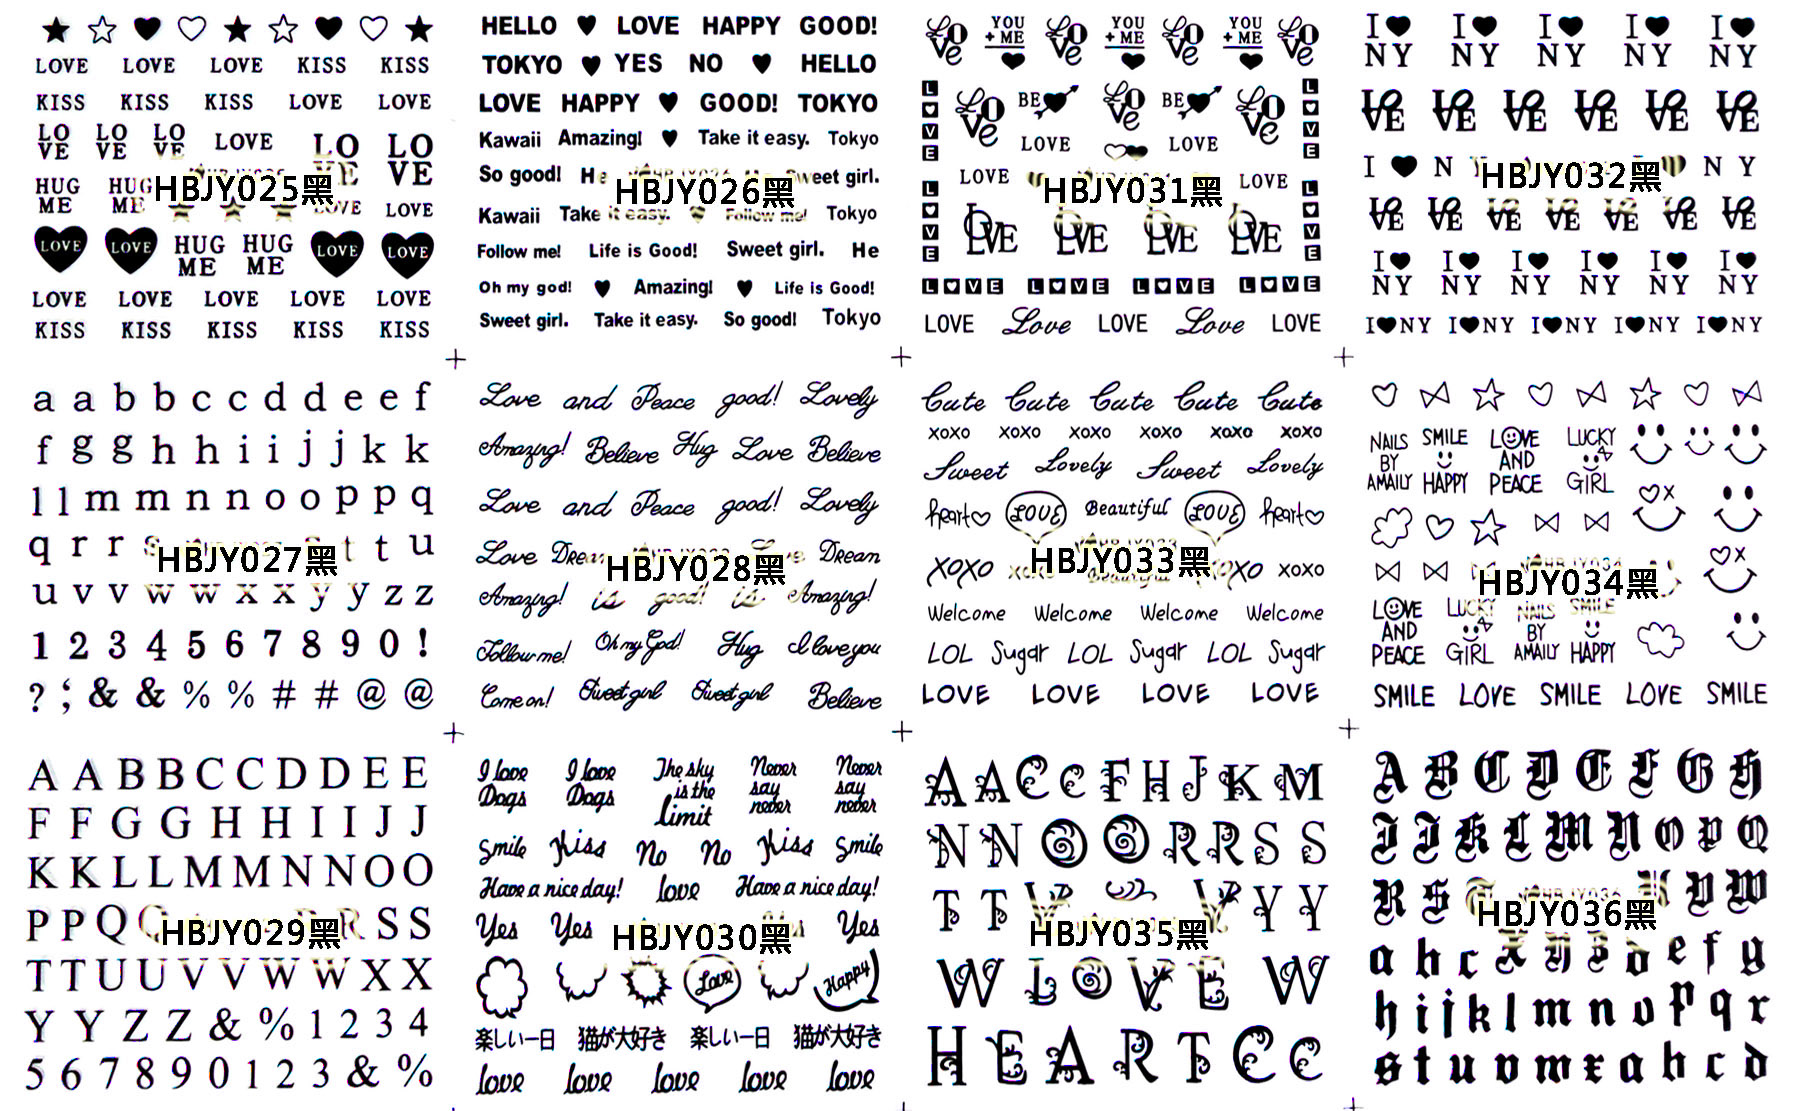 LOVE LOVE LOVE KISS KISS
KISS KISS KISS LOVE LOVE
LO VE LO VE LO VE LOVE LO VE LO VE
HUG ME HUG ME LOVE LOVE
HBJY025黑
LOVE LOVE HUG ME HUG ME LOVE LOVE
LOVE LOVE LOVE LOVE LOVE
KISS KISS KISS KISS KISS
HELLO ♥ LOVE HAPPY GOOD!
TOKYO ♥ YES NO ♥ HELLO
LOVE HAPPY ♥ GOOD! TOKYO
Kawaii Amazing! ♥ Take it easy. Tokyo
So good! He Sweet girl.
HBJY026黑
Kawaii Take it easy. Follow me! Tokyo
Follow me! Life is Good! Sweet girl. He
Oh my god! ♥ Amazing! ♥ Life is Good!
Sweet girl. Take it easy. So good! Tokyo
LOVE YOU + ME LOVE YOU + ME LOVE YOU + ME LOVE
LOVE LOVE BE LOVE BE LOVE LOVE
LOVE LOVE
LOVE LOVE
HBJY031黑
LOVE LOVE LOVE LOVE LOVE LOVE
L♥VE L♥VE L♥VE L♥VE
LOVE Love LOVE Love LOVE
I♥ NY I♥ NY I♥ NY I♥ NY I♥ NY
LOVE LOVE LOVE LOVE LOVE LOVE
I ♥ N Y N Y
HBJY032黑
LOVE LOVE LOVE LOVE LOVE LOVE LOVE
I♥ NY I♥ NY I♥ NY I♥ NY I♥ NY I♥ NY
I♥NY I♥NY I♥NY I♥NY I♥NY
a a b b c c d d e e f
f g g h h i i j j k k
l l m m n n o o p p q
q r r s t t u
HBJY027黑
u v v w w x x y y z z
1 2 3 4 5 6 7 8 9 0 !
? ; & & % % # # @ @
Love and Peace good! Lovely
Amazing! Believe Hug Love Believe
Love and Peace good! Lovely
Love Dream Dream
HBJY028黑
Amazing! is good! is Amazing!
Follow me! Oh my God! Hug I love you
Come on! Sweet girl Sweet girl Believe
Cute Cute Cute Cute Cute
xoxo xoxo xoxo xoxo xoxo xoxo
Sweet Lovely Sweet Lovely
heart LOVE Beautiful LOVE heart
XOXO XOXO xoxo
HBJY033黑
Welcome Welcome Welcome Welcome
LOL Sugar LOL Sugar LOL Sugar
LOVE LOVE LOVE LOVE
NAILS BY AMAILY SMILE HAPPY LOVE AND PEACE LUCKY GIRL
HBJY034黑
LOVE AND PEACE LUCKY GIRL NAILS BY AMAILY SMILE HAPPY
SMILE LOVE SMILE LOVE SMILE
A A B B C C D D E E
F F G G H H I I J J
K K L L M M N N O O
P P Q R S S
HBJY029黑
T T U U V V W W X X
Y Y Z Z & % 1 2 3 4
5 6 7 8 9 0 1 2 3 & %
I love Dogs I love Dogs The sky is the limit Never say never Never say never
Smile Kiss No No Kiss Smile
Have a nice day! love Have a nice day!
Yes Yes Yes
HBJY030黑
Love Happy
楽しい一日 猫が大好き 楽しい一日 猫が大好き
love love love love love
A A C C F H J K M
N N O O R R S S
T T V V Y Y
HBJY035黑
W L O V E W
H E A R T C C
A B C D E F G H
I J K L M N O P Q
R S V W
HBJY036黑
a b c X Y Z d e f g
h i j k l m n o p q r
s t u v w x a b c d